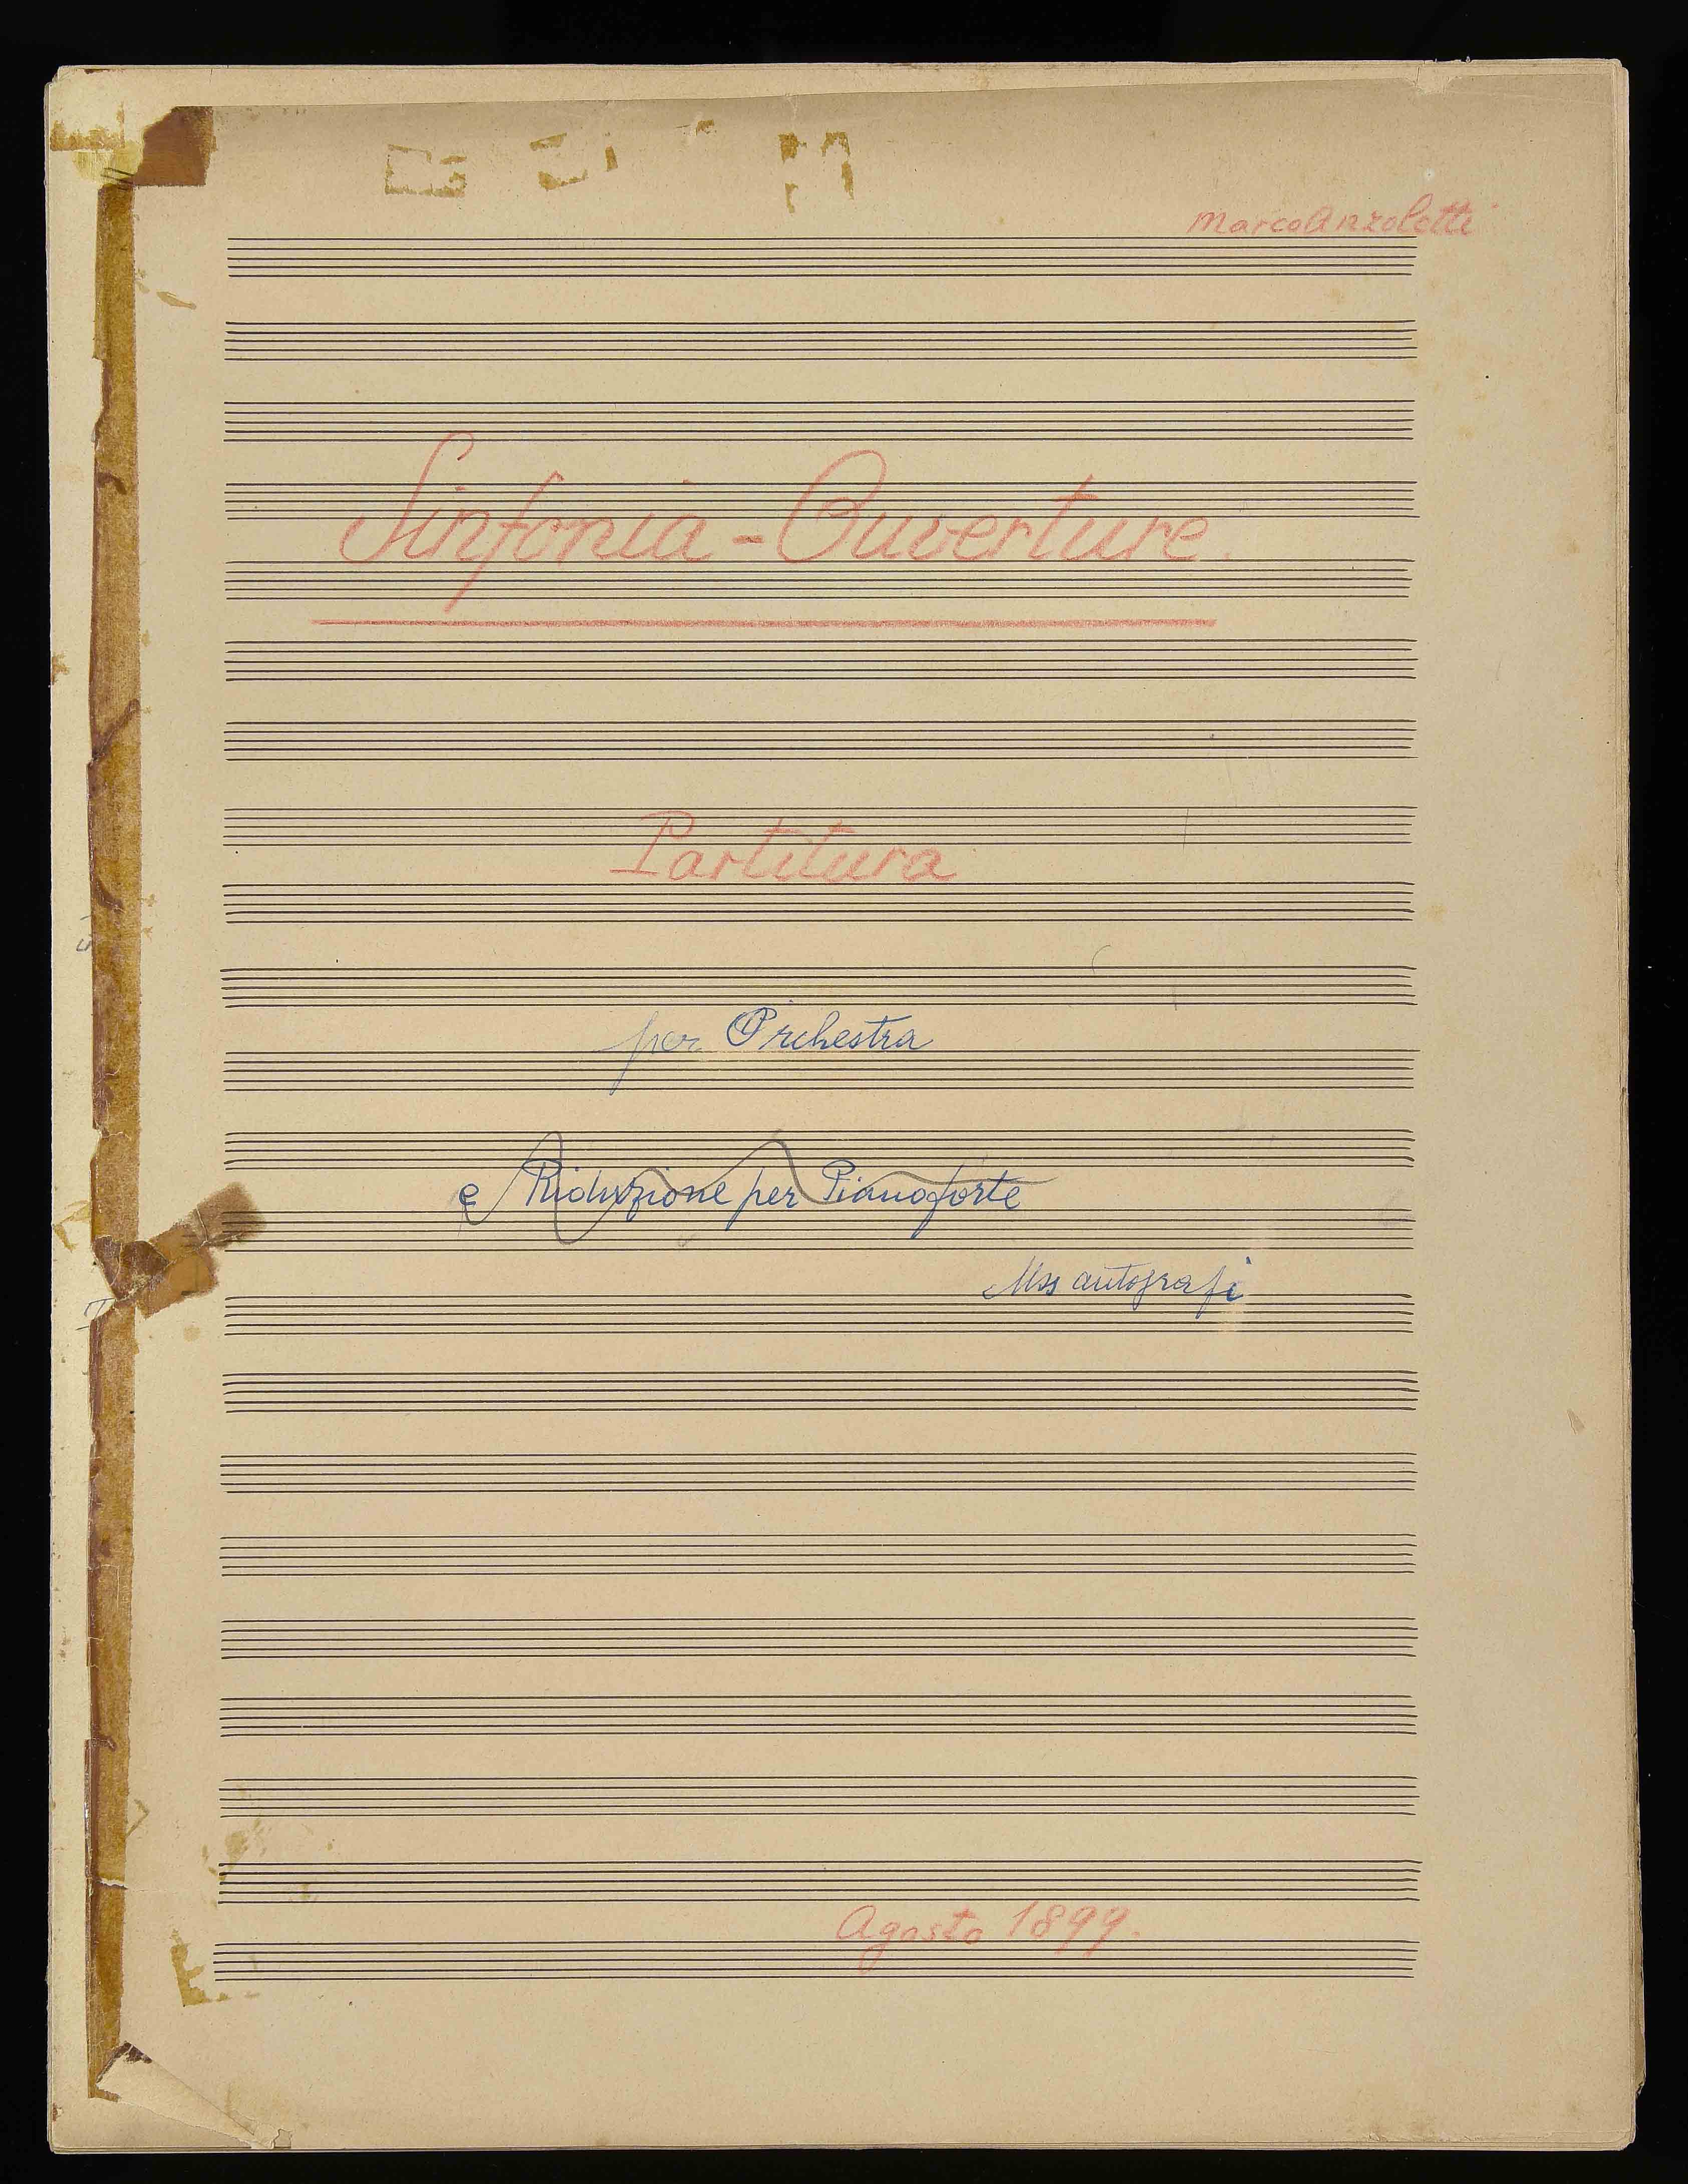 Marco Anzoletti
Sinfonia - Ouverture.
Partitura
per Orchestra
e Riduzione per Pianoforte
Mss autografi
Agosto 1899.